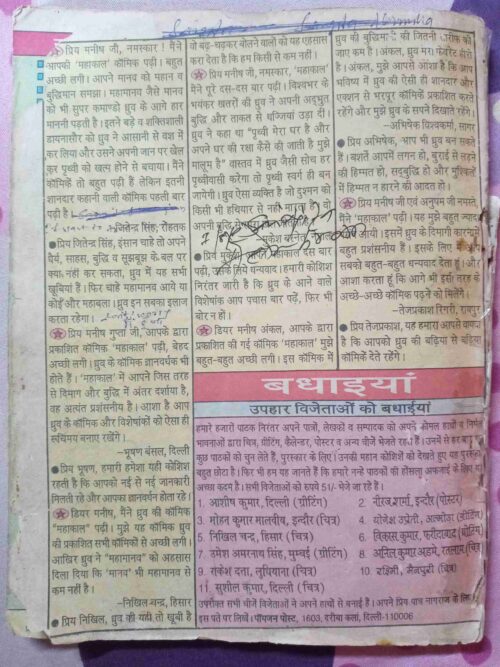 प्रिय मनीष जी, नमस्कार! मैंने
आपकी 'महाकाल' कॉमिक पढ़ी। बहुत
अच्छी लगी। आपने मानव को महान व
बुद्धिमान समझा। महामानव जैसे मानव
को भी सुपर कमाण्डो ध्रुव के आगे हार
माननी पड़ती है। इतने बड़े व शक्तिशाली
डायनासौर को ध्रुव ने आसानी से वश में
कर लिया और उसने अपनी जान पर खेल
कर पृथ्वी को खत्म होने से बचाया। मैंने
कॉमिकें तो बहुत पढ़ी हैं लेकिन इतनी
शानदार कहानी वाली कॉमिक पहली बार
पढ़ी है।
-जितेन्द्र सिंह, रोहतक
● प्रिय जितेन्द्र सिंह, इंसान चाहे तो अपने
धैर्य, साहस, बुद्धि व सूझबूझ के बल पर
क्या नहीं कर सकता, ध्रुव में यह सभी
खूबियां हैं। फिर चाहे महामानव आये या
कोई और महाबला। ध्रुव इन सबका इलाज
करता रहेगा।
प्रिय मनीष गुप्ता जी, आपके द्वारा
प्रकाशित कॉमिक 'महाकाल' पढ़ी, बेहद
अच्छी लगी। ध्रुव के कॉमिक ज्ञानवर्धक भी
होते हैं। 'महाकाल' में आपने जिस तरह
से दिमाग और बुद्धि में अंतर दर्शाया है,
वह अत्यंत प्रशंसनीय है। आशा है आप
ध्रुव के कॉमिक और विशेषांकों को ऐसा ही
रुचिमय बनाए रखेंगे।
-भूषण बंसल, दिल्ली
● प्रिय भूषण, हमारी हमेशा यही कोशिश
रहती है कि आपको नई से नई जानकारी
मिलती रहे और आपका ज्ञानवर्धन होता रहे।
डियर मनीष, मैंने ध्रुव की कॉमिक
"महाकाल" पढ़ी। मुझे यह कॉमिक ध्रुव
की प्रकाशित सभी कॉमिकों से अच्छी लगी।
आखिर ध्रुव ने "महामानव" को अहसास
दिला दिया कि 'मानव' भी महामानव से
कम नहीं है।
-निखिल चन्द्र, हिसार
● प्रिय निखिल, ध्रुव की यही तो खूबी है
वो बढ़-चढ़कर बोलने वालों को यह एहसास
करा देता है कि हम किसी से कम नहीं।
प्रिय मनीष जी, नमस्कार, 'महाकाल'
मैंने पूरे दस-दस बार पढ़ी। विश्वभर के
भयंकर खतरों की ध्रुव ने अपनी अद्भुत
बुद्धि और ताकत से धज्जियां उड़ा दी।
ध्रुव ने कहा "पृथ्वी मेरा घर है और
अपने घर की रक्षा कैसे की जाती है मुझे
मालूम है" वास्तव में ध्रुव जैसी सोच हर
पृथ्वीवासी करेगा तो पृथ्वी स्वर्ग ही बन
जायेगी। ध्रुव ऐसा व्यक्ति है जो दुश्मन को
किसी भी हथियार से नहीं मारता तो
अपनी बुद्धि
प्रिय महाकाल दस बार
पढ़ी, धन्यवाद। हमारी कोशिश
निरंतर जारी है कि ध्रुव के आने वाले
विशेषांक आप पचास बार पढ़ें, फिर भी
बोर न हों।
डियर मनीष अंकल, आपके द्वारा
प्रकाशित की गई कॉमिक 'महाकाल' मुझे
बहुत-बहुत अच्छी लगी। इस कॉमिक में
ध्रुव की बुद्धिमानी की जितनी तारीफ की
जाए कम है। अंकल, ध्रुव मेरा फेवरेट हीरो
है। अंकल, मुझे आपसे आशा है कि आप
भविष्य में ध्रुव की ऐसी ही शानदार और
एक्शन से भरपूर कॉमिकें प्रकाशित करते
रहेंगे और मुझे ध्रुव के सपने दिखाते रहेंगे।
-अभिषेक विश्वकर्मा, सागर
● प्रिय अभिषेक, आप भी ध्रुव बन सकते
हैं। बशर्ते आपमें लगन हो, बुराई से लड़ने
की हिम्मत हो, सदबुद्धि हो और मुश्किलों
में हिम्मत न हारने की आदत हो।
प्रिय मनीष जी एवं अनुपम जी नमस्ते,
मैंने 'महाकाल' पढ़ी। यह मुझे बहुत ज्यादा
आयी। इसमें ध्रुव के दिमागी कारनामे
बहुत प्रशंसनीय हैं। इसके लिए मैं आप
सबको बहुत-बहुत धन्यवाद देता हूं। और
आशा करता हूं कि आगे भी इसी तरह के
अच्छे-अच्छे कॉमिक पढ़ने को मिलेंगे।
-तेजप्रकाश रिगरी, रायपुर
● प्रिय तेजप्रकाश, यह हमारा आपसे वायदा
है कि आपको ध्रुव की बढ़िया से बढ़िया
कॉमिकें देते रहेंगे।
बधाइयां
उपहार विजेताओं को बधाईयां
हमारे हजारों पाठक निरंतर अपने पात्रों, लेखकों व सम्पादक को अपने कोमल हाथों व निर्मल
भावनाओं द्वारा चित्र, ग्रीटिंग, कैलेन्डर, पोस्टर व अन्य चीजें भेजते रहते हैं। उनमें से हर बार
कुछ पाठकों को चुन लेते हैं, पुरस्कार के लिए। उनकी महान कोशिशों को देखते हुए यह पुरस्कार
बहुत छोटा है। फिर भी हम यह जानते हैं कि हमारे नन्हे पाठकों की हौसला अफजाई के लिए यह
अच्छा कदम है। सभी विजेताओं को रुपये 51/- भेजे जा रहे हैं।
1. आशीष कुमार, दिल्ली (ग्रीटिंग)
2. नीरज शर्मा, इन्दौर (पोस्टर)
3. मोहन कुमार मालवीय, इन्दौर (चित्र)
4. योगेश उप्रेती, अल्मोड़ा (ग्रीटिंग)
5. निखिल चन्द्र, हिसार (चित्र)
6. विकास कुमार, फरीदाबाद
7. उमेश अमरनाथ सिंह, मुम्बई (ग्रीटिंग)
8. अनिल कुमार अहमे, रतलाम (चित्र)
9. राकेश दत्ता, लुधियाना (चित्र)
10. रश्मि, मैनपुरी (चित्र)
11. सुशील कुमार, दिल्ली (चित्र)
उपरोक्त सभी चीजें विजेताओं ने अपने हाथों से बनाई हैं। अपने प्रिय पात्र नागराज के लिए
इस पते पर लिखें। पॉयजन पोस्ट, 1603, दरीबा कलां, दिल्ली-110006